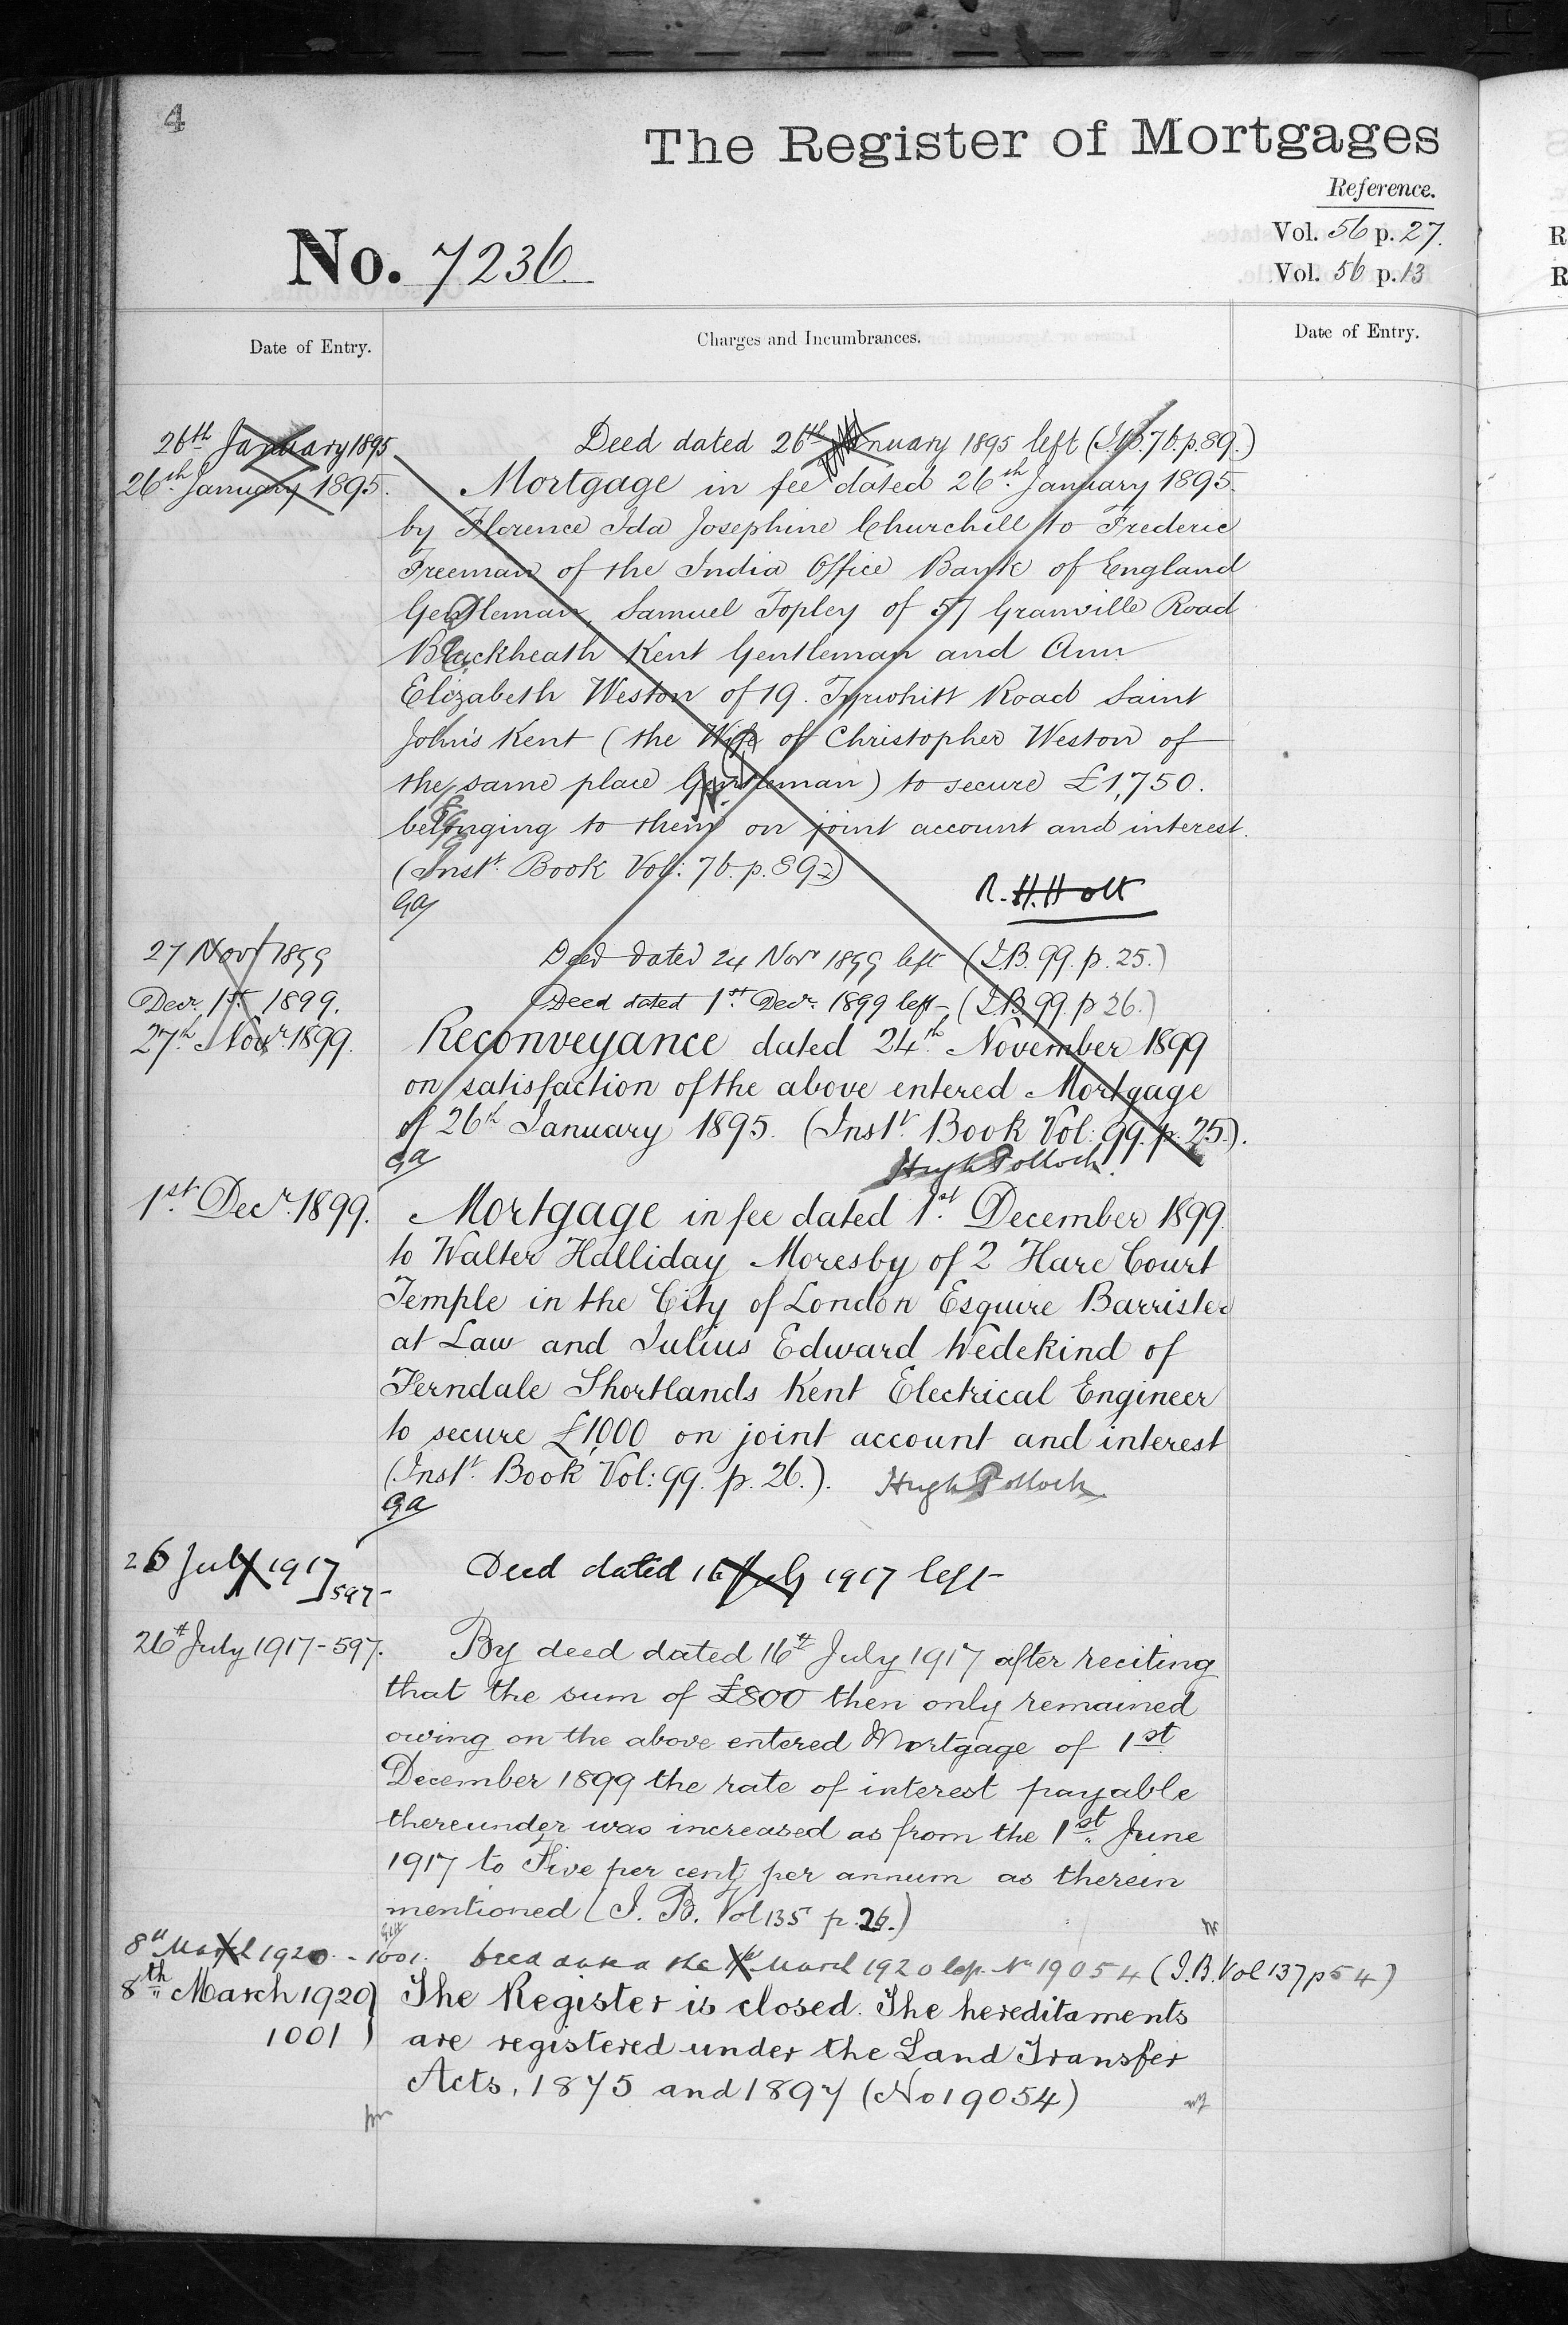 4
The Register of Mortgages
Reference.
No. 7236
Vol. 56 p. 27.
Vol. 56 p. 13
Date of Entry.
Charges and Incumbrances.
Date of Entry.
26th January 1895 Deed dated 26th January 1895 left (I.B. 76. p. 89.)
26th January 1895. Mortgage in fee dated 26th January 1895
by Florence Ida Josephine Churchill to Frederic
Freeman of the India Office Bank of England
Gentleman, Samuel Topley of 57 Granville Road
Blackheath Kent Gentleman and Ann
Elizabeth Weston of 19. Tyrwhitt Road Saint
John's Kent (the Wife of Christopher Weston of
the same place Gentleman) to secure £1,750.
belonging to them on joint account and interest.
(Inst. Book Vol: 76. p. 89.)
R. H. Holt
GA
27 Nov 1899 Deed dated 24 Novr 1899 left (I.B. 99. p. 25.)
Decr. 1st. 1899. Deed dated 1st. Decr. 1899 left (I.B. 99. p 26.)
27th Novr. 1899. Reconveyance dated 24th November 1899
on satisfaction of the above entered Mortgage
of 26th January 1895. (Inst. Book Vol: 99. p. 25.).
GA Hugh Pollock.
1st. Decr. 1899. Mortgage in fee dated 1st. December 1899.
to Walter Halliday Moresby of 2 Hare Court
Temple in the City of London Esquire Barrister
at Law and Julius Edward Wedekind of
Ferndale Shortlands Kent Electrical Engineer
to secure £1,000 on joint account and interest
(Inst. Book Vol: 99. p. 26.). Hugh Pollock
GA
26 July 1917 Deed dated 16 July 1917 left
597-
26th July 1917-597. By deed dated 16th July 1917 after reciting
that the sum of £800 then only remained
owing on the above entered Mortgage of 1st
December 1899 the rate of interest payable
thereunder was increased as from the 1st. June
1917 to Five per cent per annum as therein
mentioned (I. B. Vol 135 p. 26.)
8th March 1920 - 1001. Deed dated the March 1920 No 19054 (I.B. Vol 137 p 54)
8th March 1920 The Register is closed. The hereditaments
1001 are registered under the Land Transfer
Acts, 1875 and 1897 (No 19054)